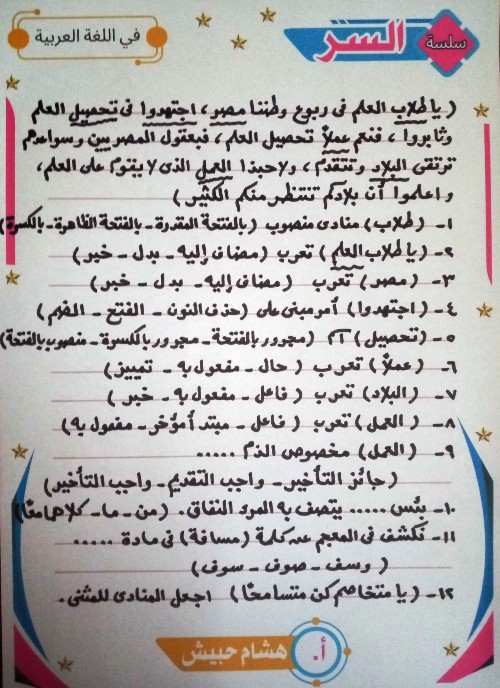 سلسة السر
في اللغة العربية
( يا طلاب العلم فى ربوع وطننا مصر، اجتهدوا فى تحصيل العلم
وثابروا، فنعم عملاً تحصيل العلم، فبعقول المصريين وسواعدهم
ترتقى البلاد وتتقدم، ولاحبذا العمل الذى لا يقوم على العلم،
واعلموا أن بلادكم تنتظر منكم الكثير )
١- (طلاب) منادى منصوب (بالفتحة المقدرة - بالفتحة الظاهرة - بالكسرة)
٢- (يا طلاب العلم) تعرب (مضاف إليه - بدل - خبر)
٣- (مصر) تعرب (مضاف إليه - بدل - خبر)
٤- (اجتهدوا) أمر مبنى على (حذف النون - الفتح - الضم)
٥- (تحصيل) (مجرور بالفتحة - مجرور بالكسرة - منصوب بالفتحة)
٦- (عملاً) تعرب (حال - مفعول به - تمييز)
٧- (البلاد) تعرب (فاعل - مفعول به - خبر)
٨- (العمل) تعرب (فاعل - مبتدأ مؤخر - مفعول به)
٩- (العمل) مخصوص الذم .....
(جائز التأخير - واجب التقديم - واجب التأخير)
١٠- بئس ..... يتصف به المرء النفاق. (من - ما - كلاهما معًا)
١١- نكشف فى المعجم عن كلمة (مسافة) فى مادة .....
(وسف - صوف - سوف)
١٢- (يا متخاصم كن متسامحًا) اجعل المنادى للمثنى.
أ. هشام حبيش